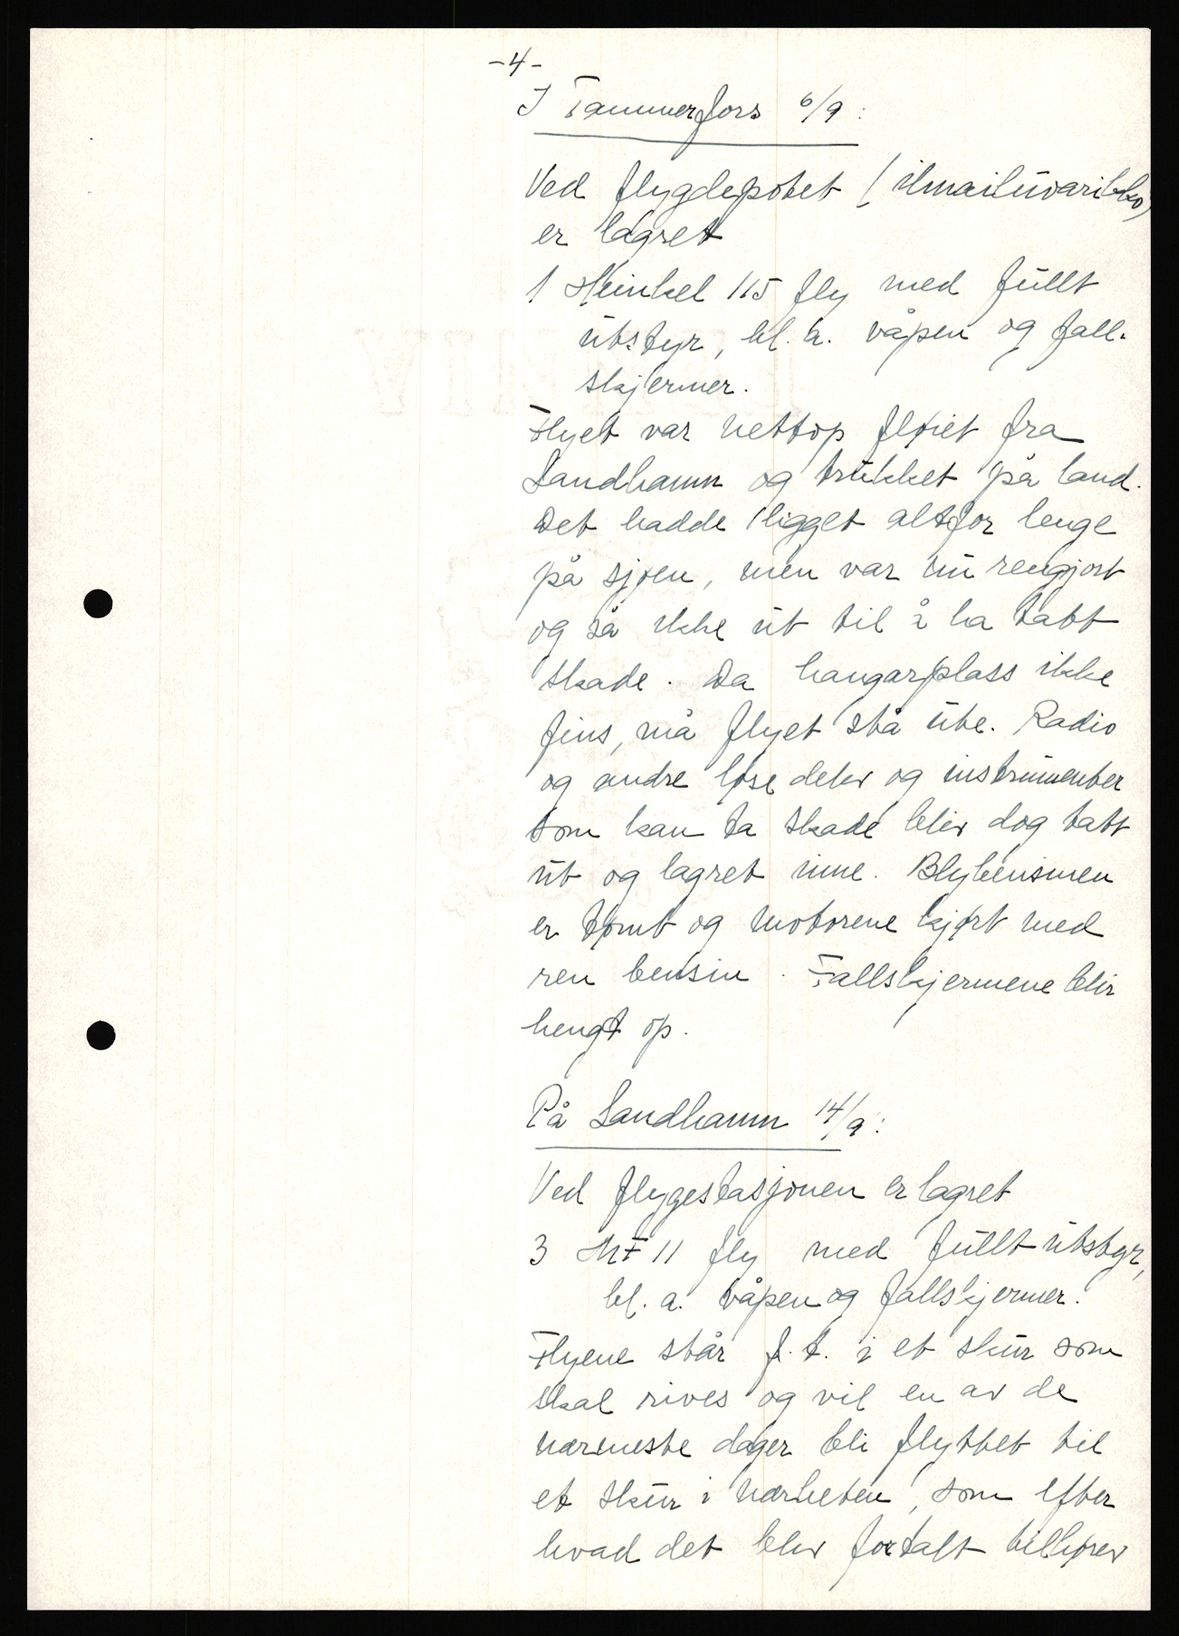 -4-
I Tammerfors 6/9:
Ved flygdepotet (ilmailuvarikko)
er lagret
1 Heinkel 115 fly med fullt
utstyr, bl.a. våpen og fall-
skjermer.
Flyet var nettop fløiet fra
Sandhamn og trukket på land.
Det hadde ligget altfor lenge
på sjøen, men var nu rengjort
og så ikke ut til å ha tatt
skade. Da hangarplass ikke
fins, må flyet stå ute. Radio
og andre løse deler og instrumenter
som kan ta skade blir dog tatt
ut og lagret inne. Blybensinen
er tømt og motorene kjørt med
ren bensin. Fallskjermene blir
hengt op.
På Sandhamn 14/9:
Ved flygestasjonen er lagret
3 MF 11 fly med fullt utstyr,
bl.a. våpen og fallskjermer.
Flyene står f.t. i et skur som
skal rives og vil en av de
nærmeste dager bli flyttet til
et skur i nærheten, som efter
hvad det blev fortalt tilhører